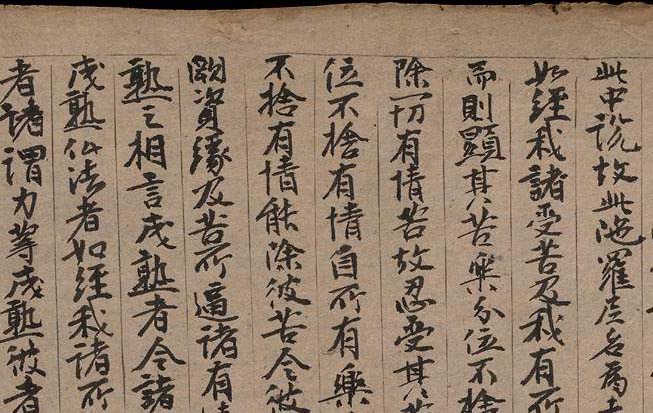 此中説故此陁羅尼名爲
如經我諸受苦及我有所
而則顯其苦樂分位不捨
除一切有情苦故忍受其苦
位不捨有情自所有樂
不捨有情能除彼苦令彼
闕資緣及苦所逼諸有情
熟之相言成熟者令諸
成熟仏法者如經我諸所
者諸謂力等成熟彼者